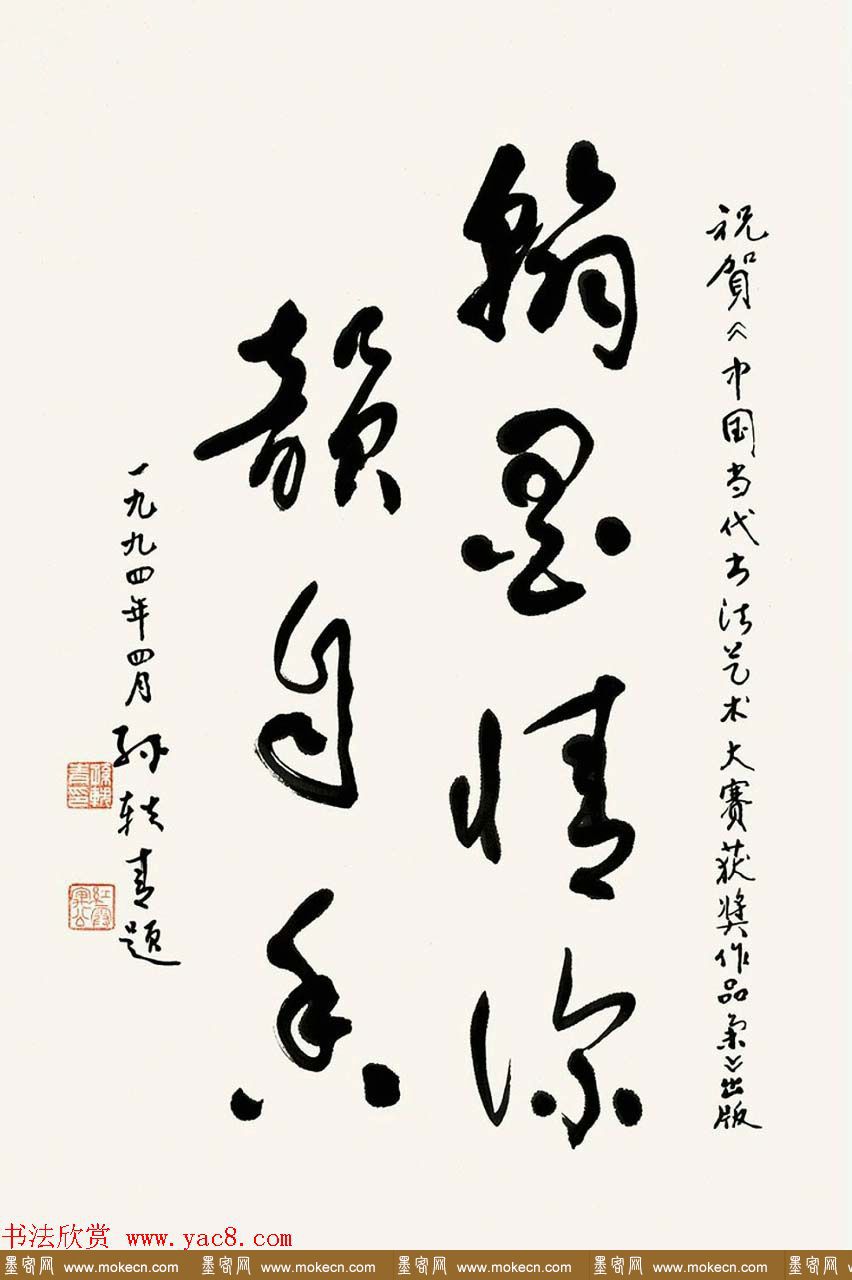 祝贺《中国当代书法艺术大赛获奖作品集》出版
翰墨情深
韵自香
一九九四年四月 孙轶青题
孙轶青印
书法欣赏 www.yac8.com
墨客网 www.mokecn.com 墨客网 www.mokecn.com 墨客网 www.mokecn.com 墨客网 www.mokecn.com